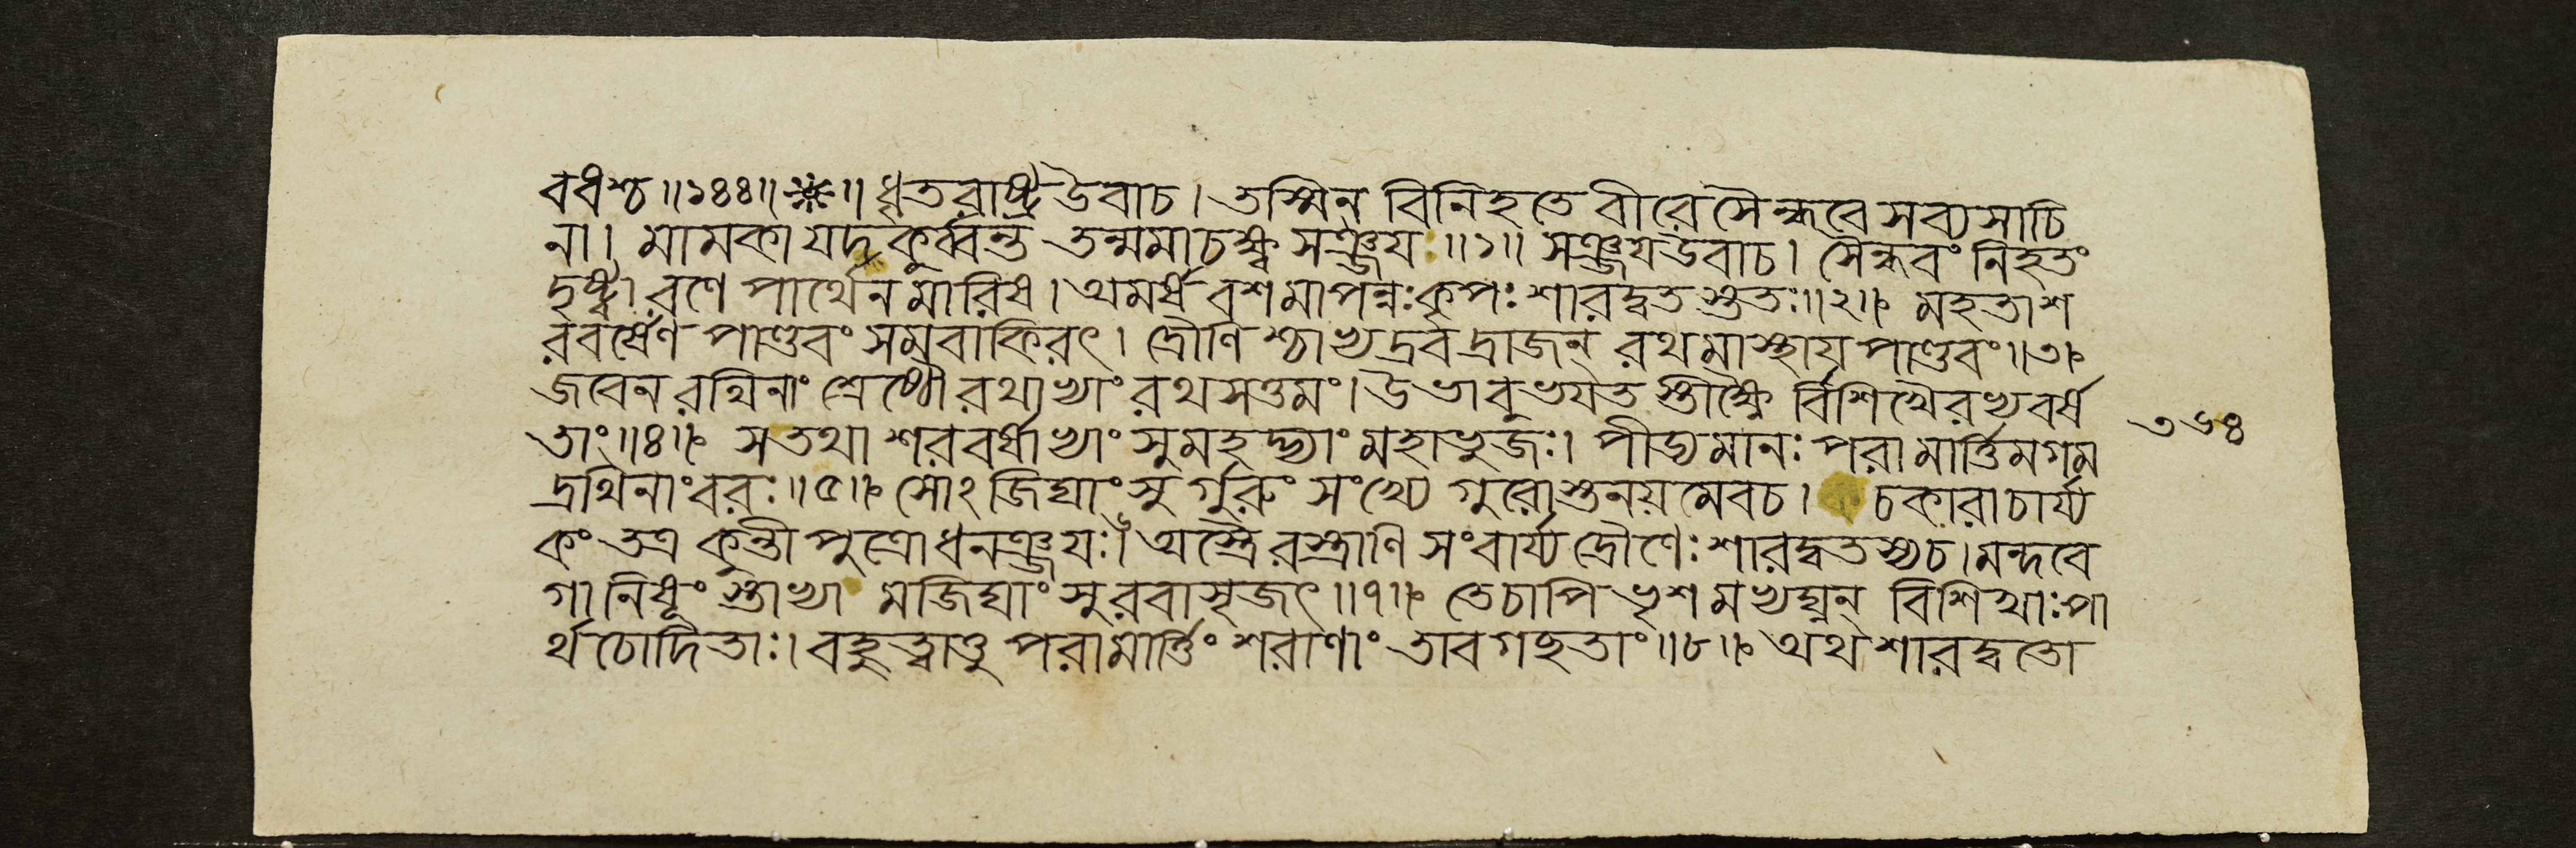 বধশ্চ॥১৪৪॥❈॥ধৃতরাষ্ট্র উবাচ। তস্মিন্ বিনিহতে বীরে সৈন্ধবে সব্যসাচি
না। মামকা যদকুর্ব্বন্ত তন্মমাচক্ষ্ব সঞ্জয়॥১॥ সঞ্জয় উবাচ। সৈন্ধবং নিহতং
দৃষ্ট্বা রণে পার্থেন মারিষ। অমর্ষবশমাপন্নঃ কৃপঃ শারদ্বতস্তুতঃ॥২॥ মহতা শ
রবর্ষেণ পাণ্ডবং সমবাকিরৎ। দ্রৌণিশ্চাভ্যদ্রবদ্রাজন্ রথমাস্থায় পাণ্ডবং॥৩॥
জবেন রথিনাং শ্রেষ্ঠৌ রথাভ্যাং রথসত্তমং। উভাবুভয়তস্তীক্ষ্ণৈ র্বিশিখৈরভ্যবর্ষ
তাং॥৪॥ স তথা শরবর্ষাভ্যাং সুমহদ্ভ্যাং মহাভুজঃ। পীড্যমানঃ পরামার্ত্তিমগম
৩৬৪
দ্রথিনাং বরঃ॥৫॥ সোঽজিঘাংসুর্গুরুং সংখ্যে গুরোস্তনয়মেবচ। চকারাচার্য্য
কং তত্র কুন্তীপুত্রো ধনঞ্জয়ঃ।৬ অস্ত্রৈরস্ত্রাণি সংবার্য্য দ্রৌণেঃ শারদ্বতস্যচ। মন্দবে
গানিষূংস্তাভ্যা মজিঘাংসুরবাসৃজৎ॥৭॥ তেচাপি ভৃশমভ্যঘ্নন্ বিশিখাঃ পা
র্থচোদিতাঃ। বহুত্বাত্তু পরামার্ত্তিং শরাণাং তাবগছতাং॥৮॥ অথ শারদ্বতো